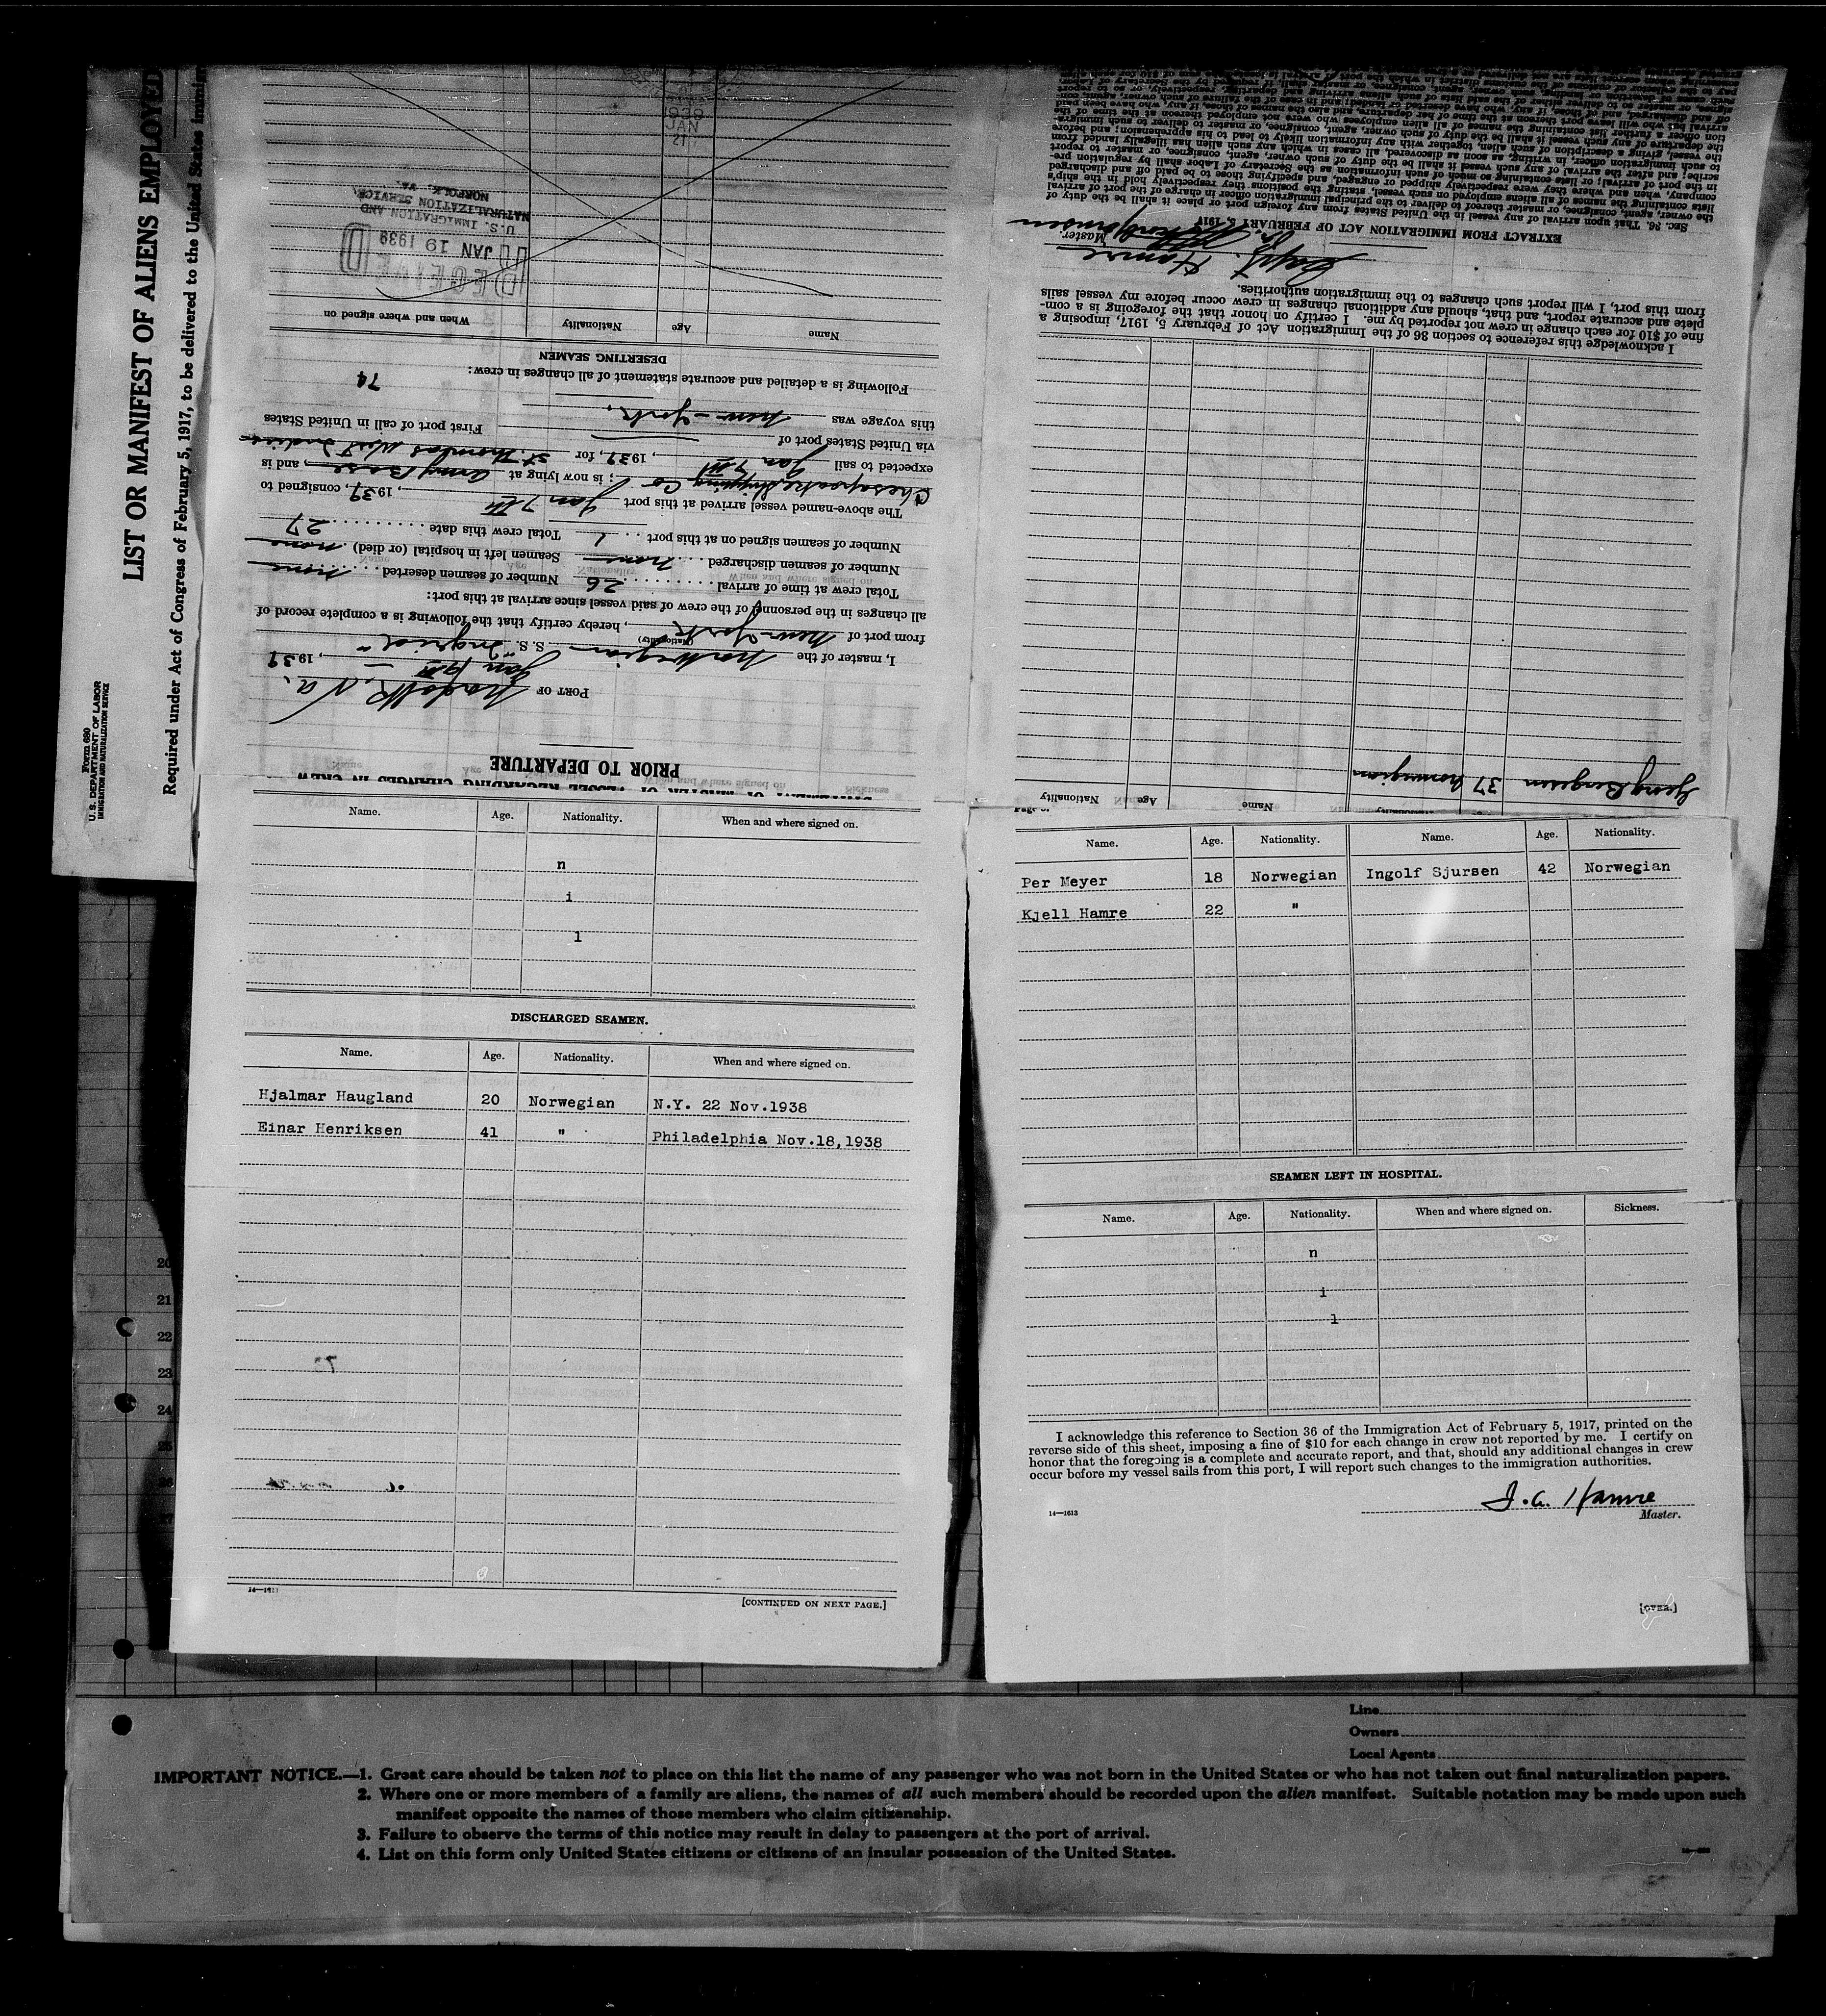 Form 680
U.S. DEPARTMENT OF LABOR
IMMIGRATION AND NATURALIZATION SERVICE
LIST OR MANIFEST OF ALIENS EMPLOYED
Required under Act of Congress of February 5, 1917, to be delivered to the United States Immigr
PRIOR TO DEPARTURE
PORT OF Norfolk, Va.
Jan 19th, 1939
I, master of the Norwegian S. S. "Ingrid"
(Nationality)
from port of New-York, hereby certify that the following is a complete record of
all changes in the personnel of the crew of said vessel since arrival at this port:
Total crew at time of arrival 26 Number of seamen deserted none
Number of seamen discharged none Seamen left in hospital (or died) none
Number of seamen signed on at this port 1 Total crew this date 27
The above-named vessel arrived at this port Jan 7th, 1939, consigned to
Chesapeake Shipping Co; is now lying at Army Base, and is
expected to sail Jan, 1939, for St. Thomas West Indies
via United States port of
First port of call in United States
this voyage was New-York.
Following is a detailed and accurate statement of all changes in crew:
74
DESERTING SEAMEN
Name Age Nationality When and where signed on
RECEIVED
JAN 19 1939
U.S. IMMIGRATION AND
NATURALIZATION SERVICE
NORFOLK, VA.
JAN
21
Name Age Nationality Name Age Nationality
Georg Bergesen 37 Norwegian
I acknowledge this reference to section 36 of the Immigration Act of February 5, 1917, imposing a
fine of $10 for each change in crew not reported by me. I certify on honor that the foregoing is a com-
plete and accurate report, and that, should any additional changes in crew occur before my vessel sails
from this port, I will report such changes to the immigration authorities.
Capt. Hamre
Master.
EXTRACT FROM IMMIGRATION ACT OF FEBRUARY 5, 1917
Sec. 36. That upon arrival of any vessel in the United States from any foreign port or place it shall be the duty of
the owner, agent, consignee, or master thereof to deliver to the principal immigration officer in charge of the port of arrival
lists containing the names of all aliens employed on such vessel, stating the positions they respectively hold in the ship's
company, when and where they were respectively shipped or engaged, and specifying those to be paid off and discharged
in the port of arrival; or lists containing so much of such information as the Secretary of Labor shall by regulation pre-
scribe; and after the arrival of any such vessel it shall be the duty of such owner, agent, consignee, or master to report
to such immigration officer, in writing, as soon as discovered, all cases in which any such alien has illegally landed from
the vessel, giving a description of such alien, together with any information likely to lead to his apprehension; and before
the departure of any such vessel it shall be the duty of such owner, agent, consignee, or master to deliver to such immigra-
tion officer a further list containing the names of all alien employees who were not employed thereon at the time of the
arrival but who will leave port thereon at the time of her departure, and also the names of those, if any, who have been paid
off and discharged, and of those, if any, who have deserted or landed; and in case of the failure of such owner, agent, con-
Name. Age. Nationality. When and where signed on.
n
i
l
DISCHARGED SEAMEN.
Name. Age. Nationality. When and where signed on.
Hjalmar Haugland 20 Norwegian N.Y. 22 Nov.1938
Einar Henriksen 41 " Philadelphia Nov.18,1938
[CONTINUED ON NEXT PAGE.]
Name. Age. Nationality. Name. Age. Nationality.
Per Meyer 18 Norwegian Ingolf Sjursen 42 Norwegian
Kjell Hamre 22 "
SEAMEN LEFT IN HOSPITAL.
Name. Age. Nationality. When and where signed on. Sickness.
n
i
l
I acknowledge this reference to Section 36 of the Immigration Act of February 5, 1917, printed on the
reverse side of this sheet, imposing a fine of $10 for each change in crew not reported by me. I certify on
honor that the foregoing is a complete and accurate report, and that, should any additional changes in crew
occur before my vessel sails from this port, I will report such changes to the immigration authorities.
J.A. Hamre
14—1613
Master.
[OVER.]
20
21
22
23
24
25
26
27
Line
Owners
Local Agents
IMPORTANT NOTICE.—1. Great care should be taken not to place on this list the name of any passenger who was not born in the United States or who has not taken out final naturalization papers.
2. Where one or more members of a family are aliens, the names of all such members should be recorded upon the alien manifest. Suitable notation may be made upon such
manifest opposite the names of those members who claim citizenship.
3. Failure to observe the terms of this notice may result in delay to passengers at the port of arrival.
4. List on this form only United States citizens or citizens of an insular possession of the United States.